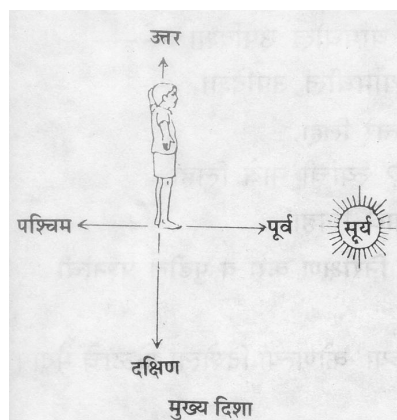 उत्तर
पश्चिम पूर्व सूर्य
दक्षिण
मुख्य दिशा